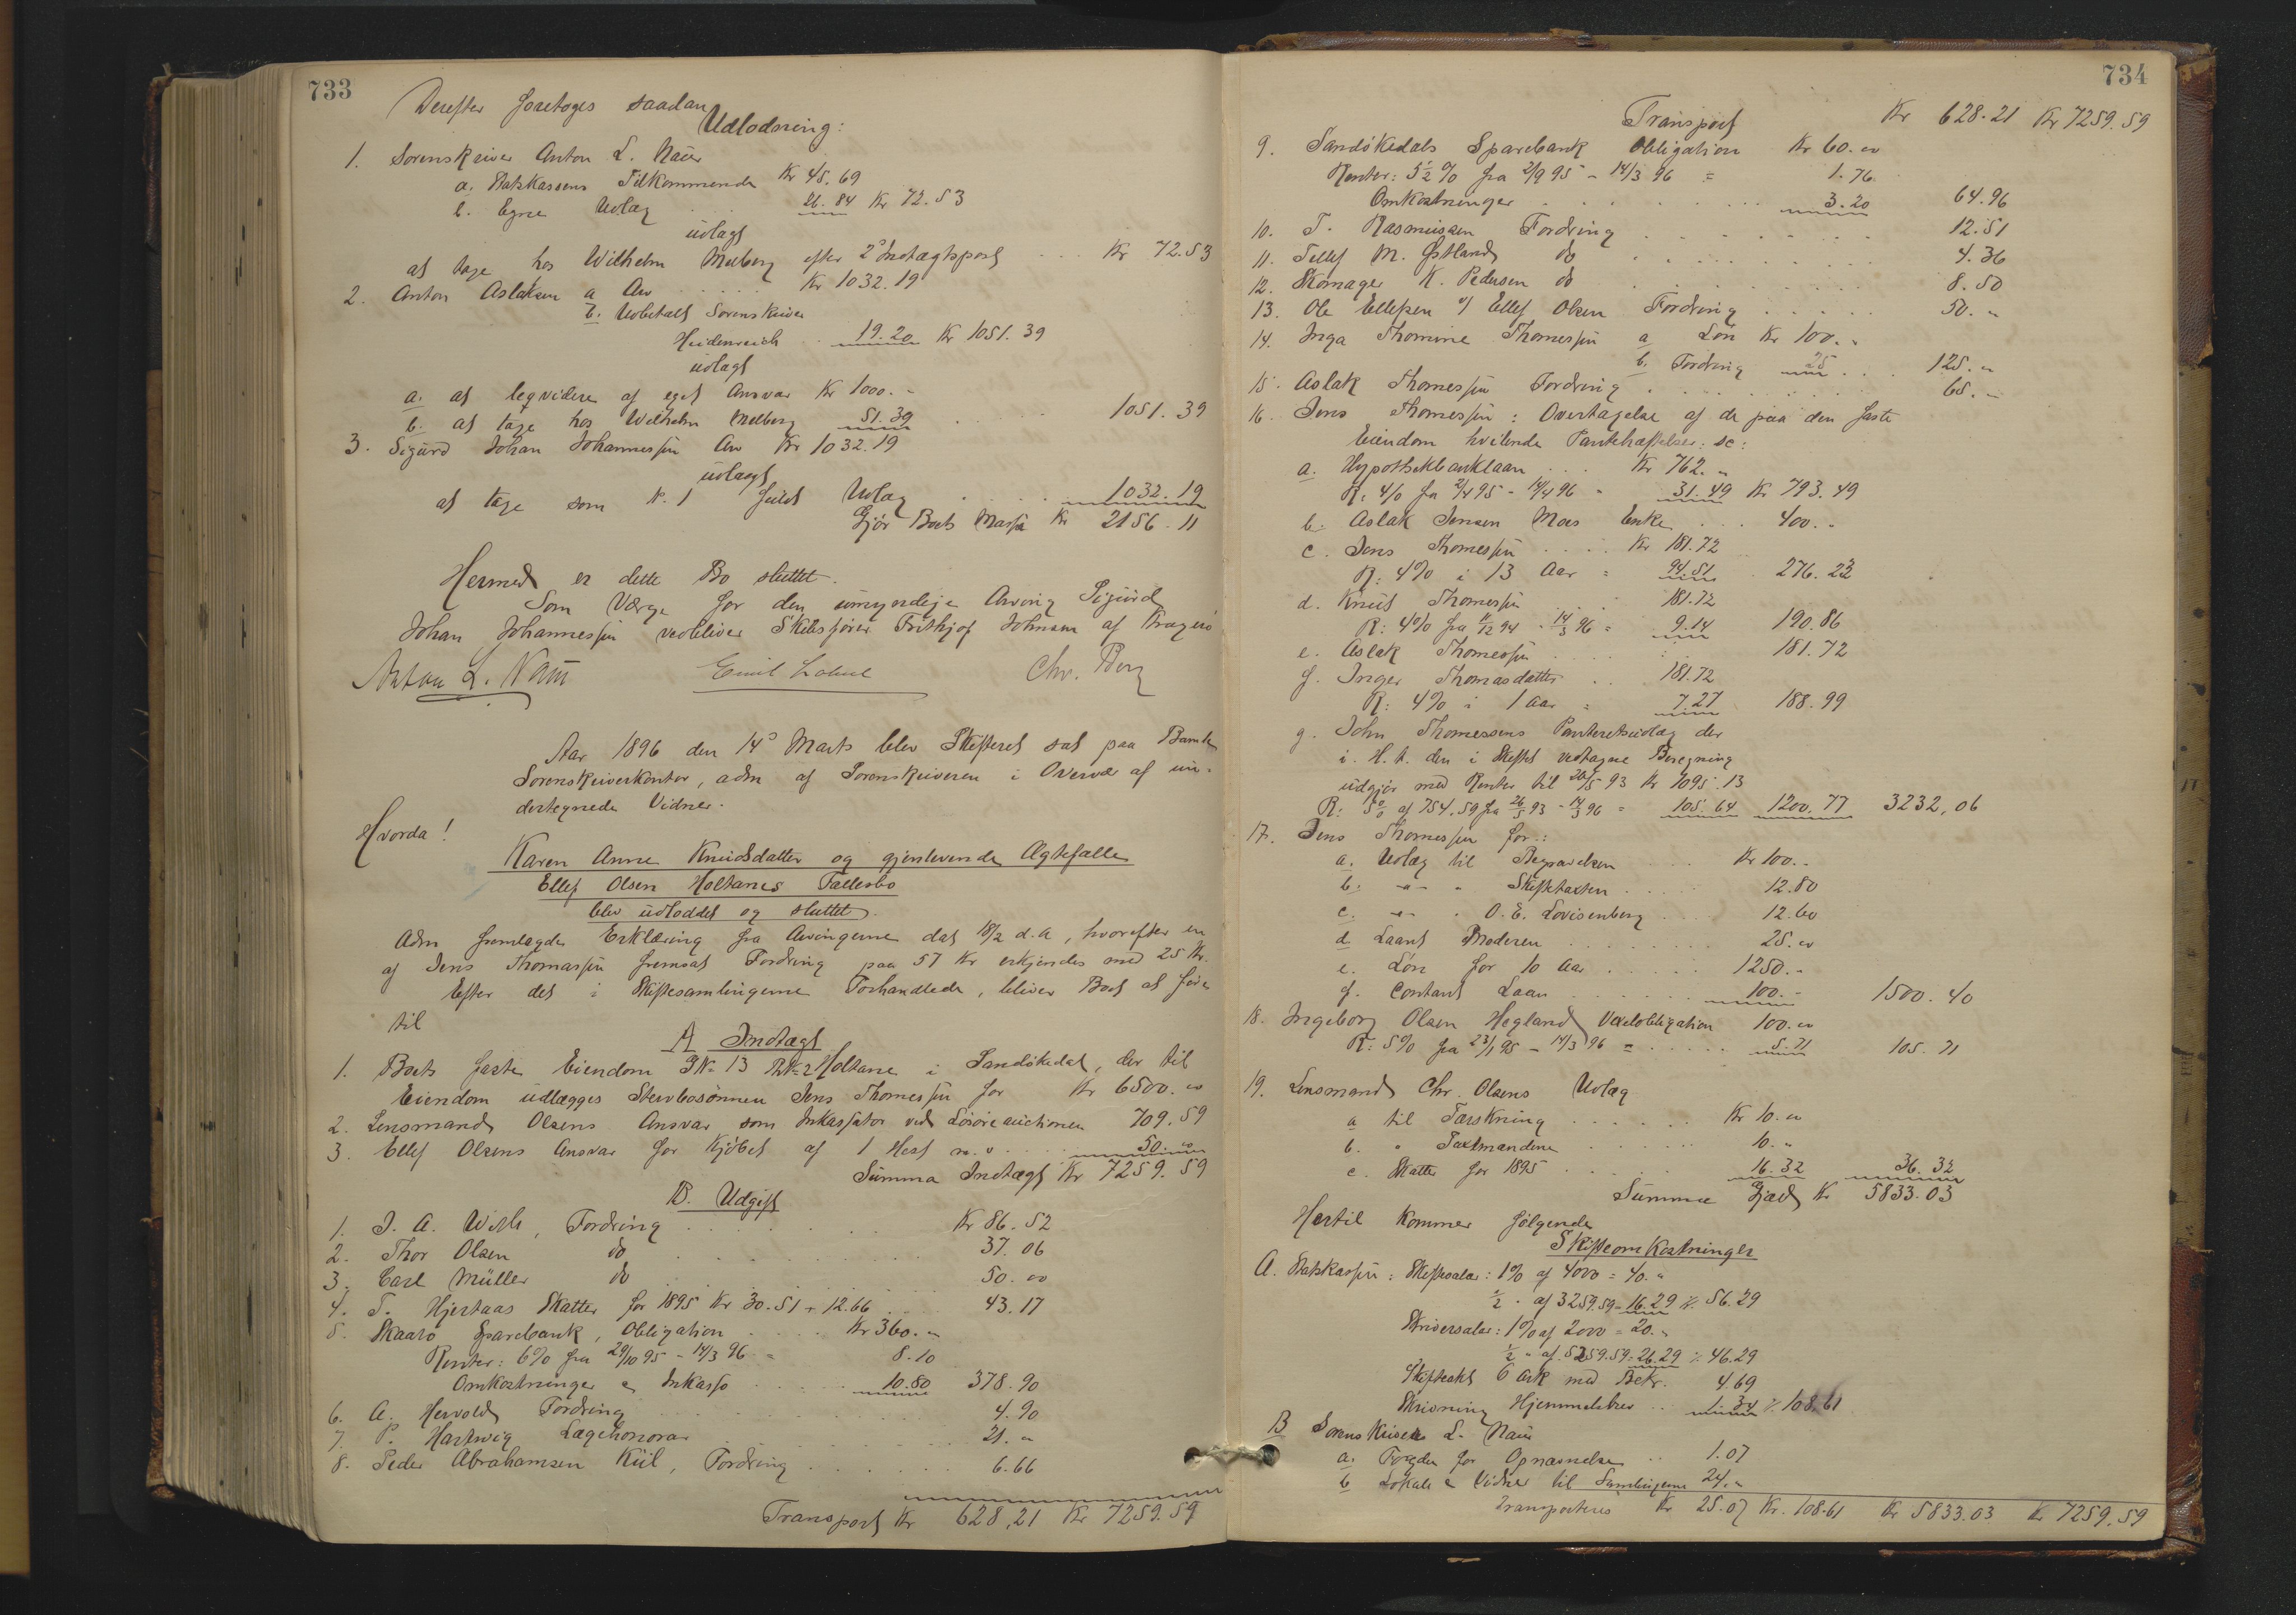 733
Derefter foretoges saadan
Udlodning:
1. Sorenskriver Anton L. Naur
a. Statskassens Tilkommende Kr 45.69
b. Egne Udlæg .. 26.84 Kr 72.53
udlagt
at tage hos Wilhelm Melberg efter 2º Indtægtspost ... Kr 72.53
2. Anton Aslaksen a Arv ..... Kr 1032.19
b. Udbetalt Sorenskriver
Heidenreich .. 19.20 Kr 1051.39
udlagt
a. at liqvidere af eget Ansvar Kr 1000.-
b. at tage hos Wilhelm Melberg 51.39 ... 1051.39
3. Sigurd Johan Johannessen Arv Kr 1032.19
udlagt
at tage som N. 1 fuldt Udlæg .... 1032.19
Gjør Boets Massa Kr 2156.11
Hermed er dette Bo sluttet.
Som Værge for den umyndige Arving Sigurd
Johan Johannessen vedbliver Skibsfører Frithjof Johnsen af Kragerø
Anton L. Naur Emil Chr. Berg
Aar 1896 den 14º Marts blev Skifteret sat paa Bamble
Sorenskriverkontor, adm af Sorenskriveren i Overvær af un-
dertegnede Vidner.
Hvorda!
Karen Anne Knudsdatter og gjenlevende Ægtefælle
Ellef Olsen Holtanes Fællesbo
blev udloddet og sluttet.
Adm fremlagde Erklæring fra Arvingerne dat 18/2 d.a, hvorefter en
af Jens Thomassen fremsat Fordring paa 57 Kr erkjendes med 25 Kr.
Efter det i Skiftesamlingerne Forhandlede, bliver Boet at føre
til
A Indtægt
1. Boets faste Eiendom GN= 13 BN=2 Holtane i Sandøkedal, der til
Eiendom udlægges Stervbosønnen Jens Thomessen for Kr 6500.00
2. Lensmand Olsens Ansvar som Inkassator ved Løsøreauctionen 709.59
3. Ellef Olsens Ansvar for Kjøbet af 1 Hest m.v ... 50.00
Summa Indtægt Kr 7259.59
B. Udgift
1. J. A. Fordring ..... Kr 86.52
2. Thor Olsen do ..... 37.06
3. Carl Müller do ..... 50.00
4. T. Hjertaas Skatter for 1895 Kr 30.51 + 12.66 ... 43.17
5. Skaatø Sparebank, Obligation .... Kr 360.-
Renter: 6% fra 29/10 95 - 14/3 96 = 8.10
Omkostninger & Inkasso .... 10.80 378.90
6. A. Hervold Fordring ..... 4.90
7. P. Hartwig Lægehonorar ..... 21.-
8. Peder Abrahamsen Kiil, Fordring ..... 6.66
Transport Kr 628,21 Kr 7259.59
734
Transport Kr 628.21 Kr 7259.59
9. Sandøkedals Sparebank Obligation Kr 60.00
Renter: 5 1/2 % fra 2/9 95 - 14/3 96 = 1.76
Omkostninger ..... 3.20 64.96
10. T. Rasmussen Fordring ..... 12.51
11. Tellef M. Østland do ..... 4.36
12. Skomager K. Pedersen do ..... 8.50
13. Ole Ellefsen v/ Ellef Olsen Fordring ..... 50.-
14. Inga Thomine Thomessen a Løn Kr 100.-
b. Fordring 25 ... 125.-
15. Aslak Thomessen Fordring ..... 65.-
16. Jens Thomessen: Overtagelse af de paa den faste
Eiendom hvilende Panthæftelser: sc:
a. Hypothekbanklaan ... Kr 762.-
R: 4% fra 2/4 95 - 14/4 96 = 31.49 Kr 793.49
b. Aslak Jensen Moes Enke ... 400.-
c. Jens Thomessen .... Kr 181.72
R: 4% i 13 Aar = 94.51 276.23
d. Knut Thomessen .. 181.72
R: 4% fra 11/12 94 - 14/3 96 = 9.14 190.86
e. Aslak Thomessen ..... 181.72
f. Inger Thomasdatter .. 181.72
R: 4% i 1 Aar = 7.27 188.99
g. John Thomessens Panteretsudlæg der
i H. t. den i Skiftet vedtagne Beregning
udgjør med Renter til 26/5 93 Kr 1095.13
R: 5% af 754.59 fra 26/5 93 - 14/3 96 = 105.64 1200.77 3232,06
17. Jens Thomessen for:
a. Udlæg til Begravelsen ... Kr 100.-
b. -"- " Skiftetaxten .... 12.80
c. -"- " O. E. Lovisenberg .... 12.60
d. Laant Moderen ..... 25.00
e. Løn for 10 Aar ..... 1250.-
f. Contant Laan ..... 100.- 1500.40
18. Ingeborg Olsen Hegland Vexelobligation 100.00
R: 5% fra 23/1 95 - 14/3 96 = ..... 5.71 105.71
19. Lensmand Chr. Olsens Udlæg
a til Tærskning ..... Kr 10.00
b. " Taxtmændene ..... 10.-
c. Skatter for 1895 ..... 16.32 36.32
Summa Gjæld Kr 5833.03
Hertil kommer følgende
Skifteomkostninger
A. Statskassen: Skiftesalær: 1% af 4000 = 40.-
1/2 - af 3259.59 = 16.29 % 56.29
Skriversalær: 1% af 2000 = 20.-
1/2 " af 5259.59 = 26.29 % 46.29
Skifteakt 6 Ark med Bekr. 4.69
Skrivning Hjemmelsbrev .. 1.34 % 108.61
B Sorenskriver L. Naur
a. Forgden for Opnævnelse .. 1.07
b Lokale & Vidner til Samlingerne 24.-
Transporteres Kr 25.07 Kr. 108.61 Kr 5833.03 Kr 7259.59